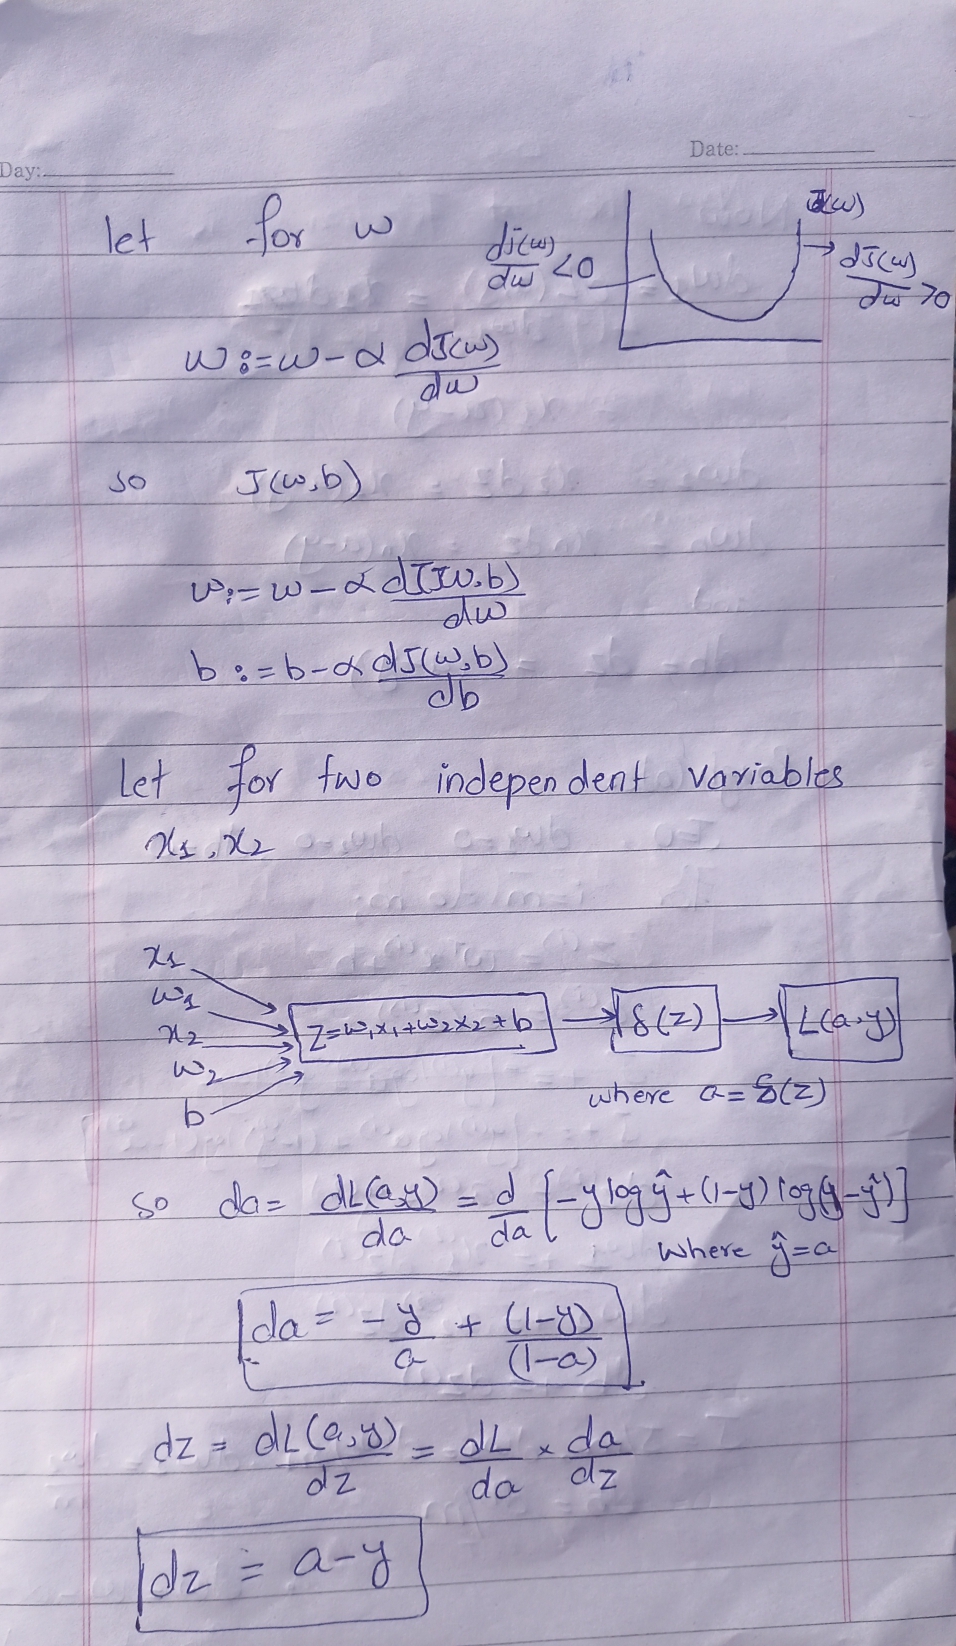 Day:
Date:
let for w
J(w)
dJ(w)/dw <0
dJ(w)/dw >0
w:=w-α dJ(w)/dw
so J(w,b)
w:=w-α dJ(w,b)/dw
b:=b-α dJ(w,b)/db
Let for two independent variables
x1, x2
x1
w1
x2
w2
b
z=w1x1+w2x2+b
δ(z)
L(a,y)
where a=δ(z)
so da= dL(a,y)/da = d/da [-y log ŷ+(1-y) log(1-ŷ)]
where ŷ=a
da = -y/a + (1-y)/(1-a)
dz = dL(a,y)/dz = dL/da × da/dz
dz = a-y